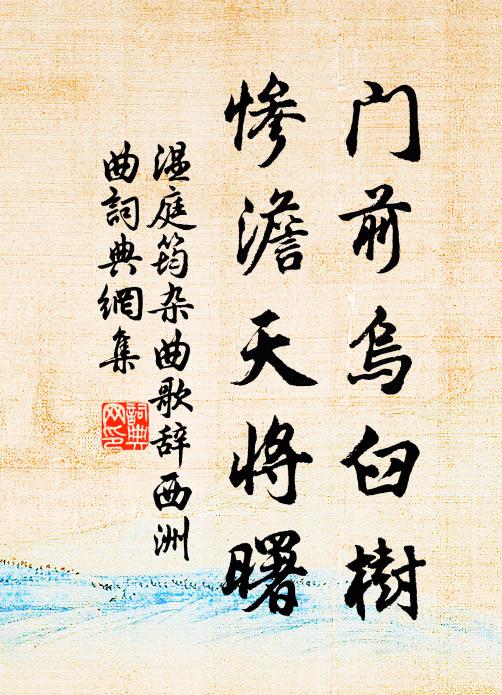 门前乌臼树
惨澹天将曙
温庭筠杂曲歌辞西洲
曲词典网集
词典
网印